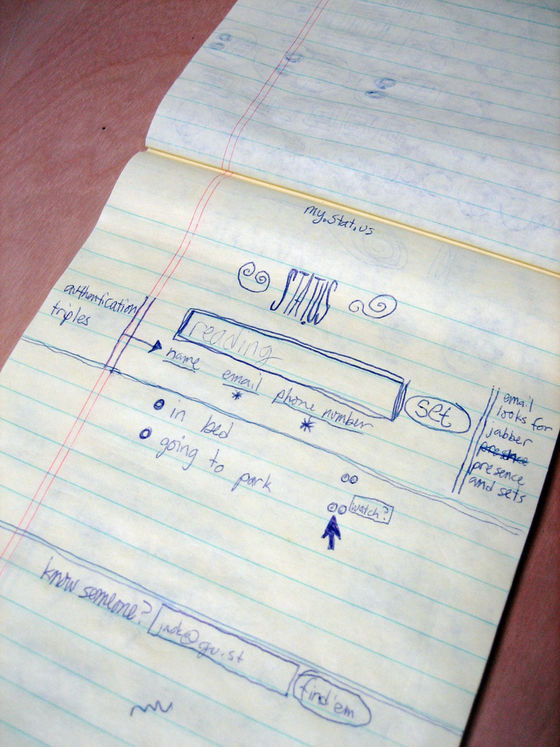 my.stat.us
STATUS
authentication
triples
reading
name email phone number
set
email
looks for
jabber
presence
presence
and sets
in bed
going to park
watch?
know someone?
jack@gu.st
find 'em